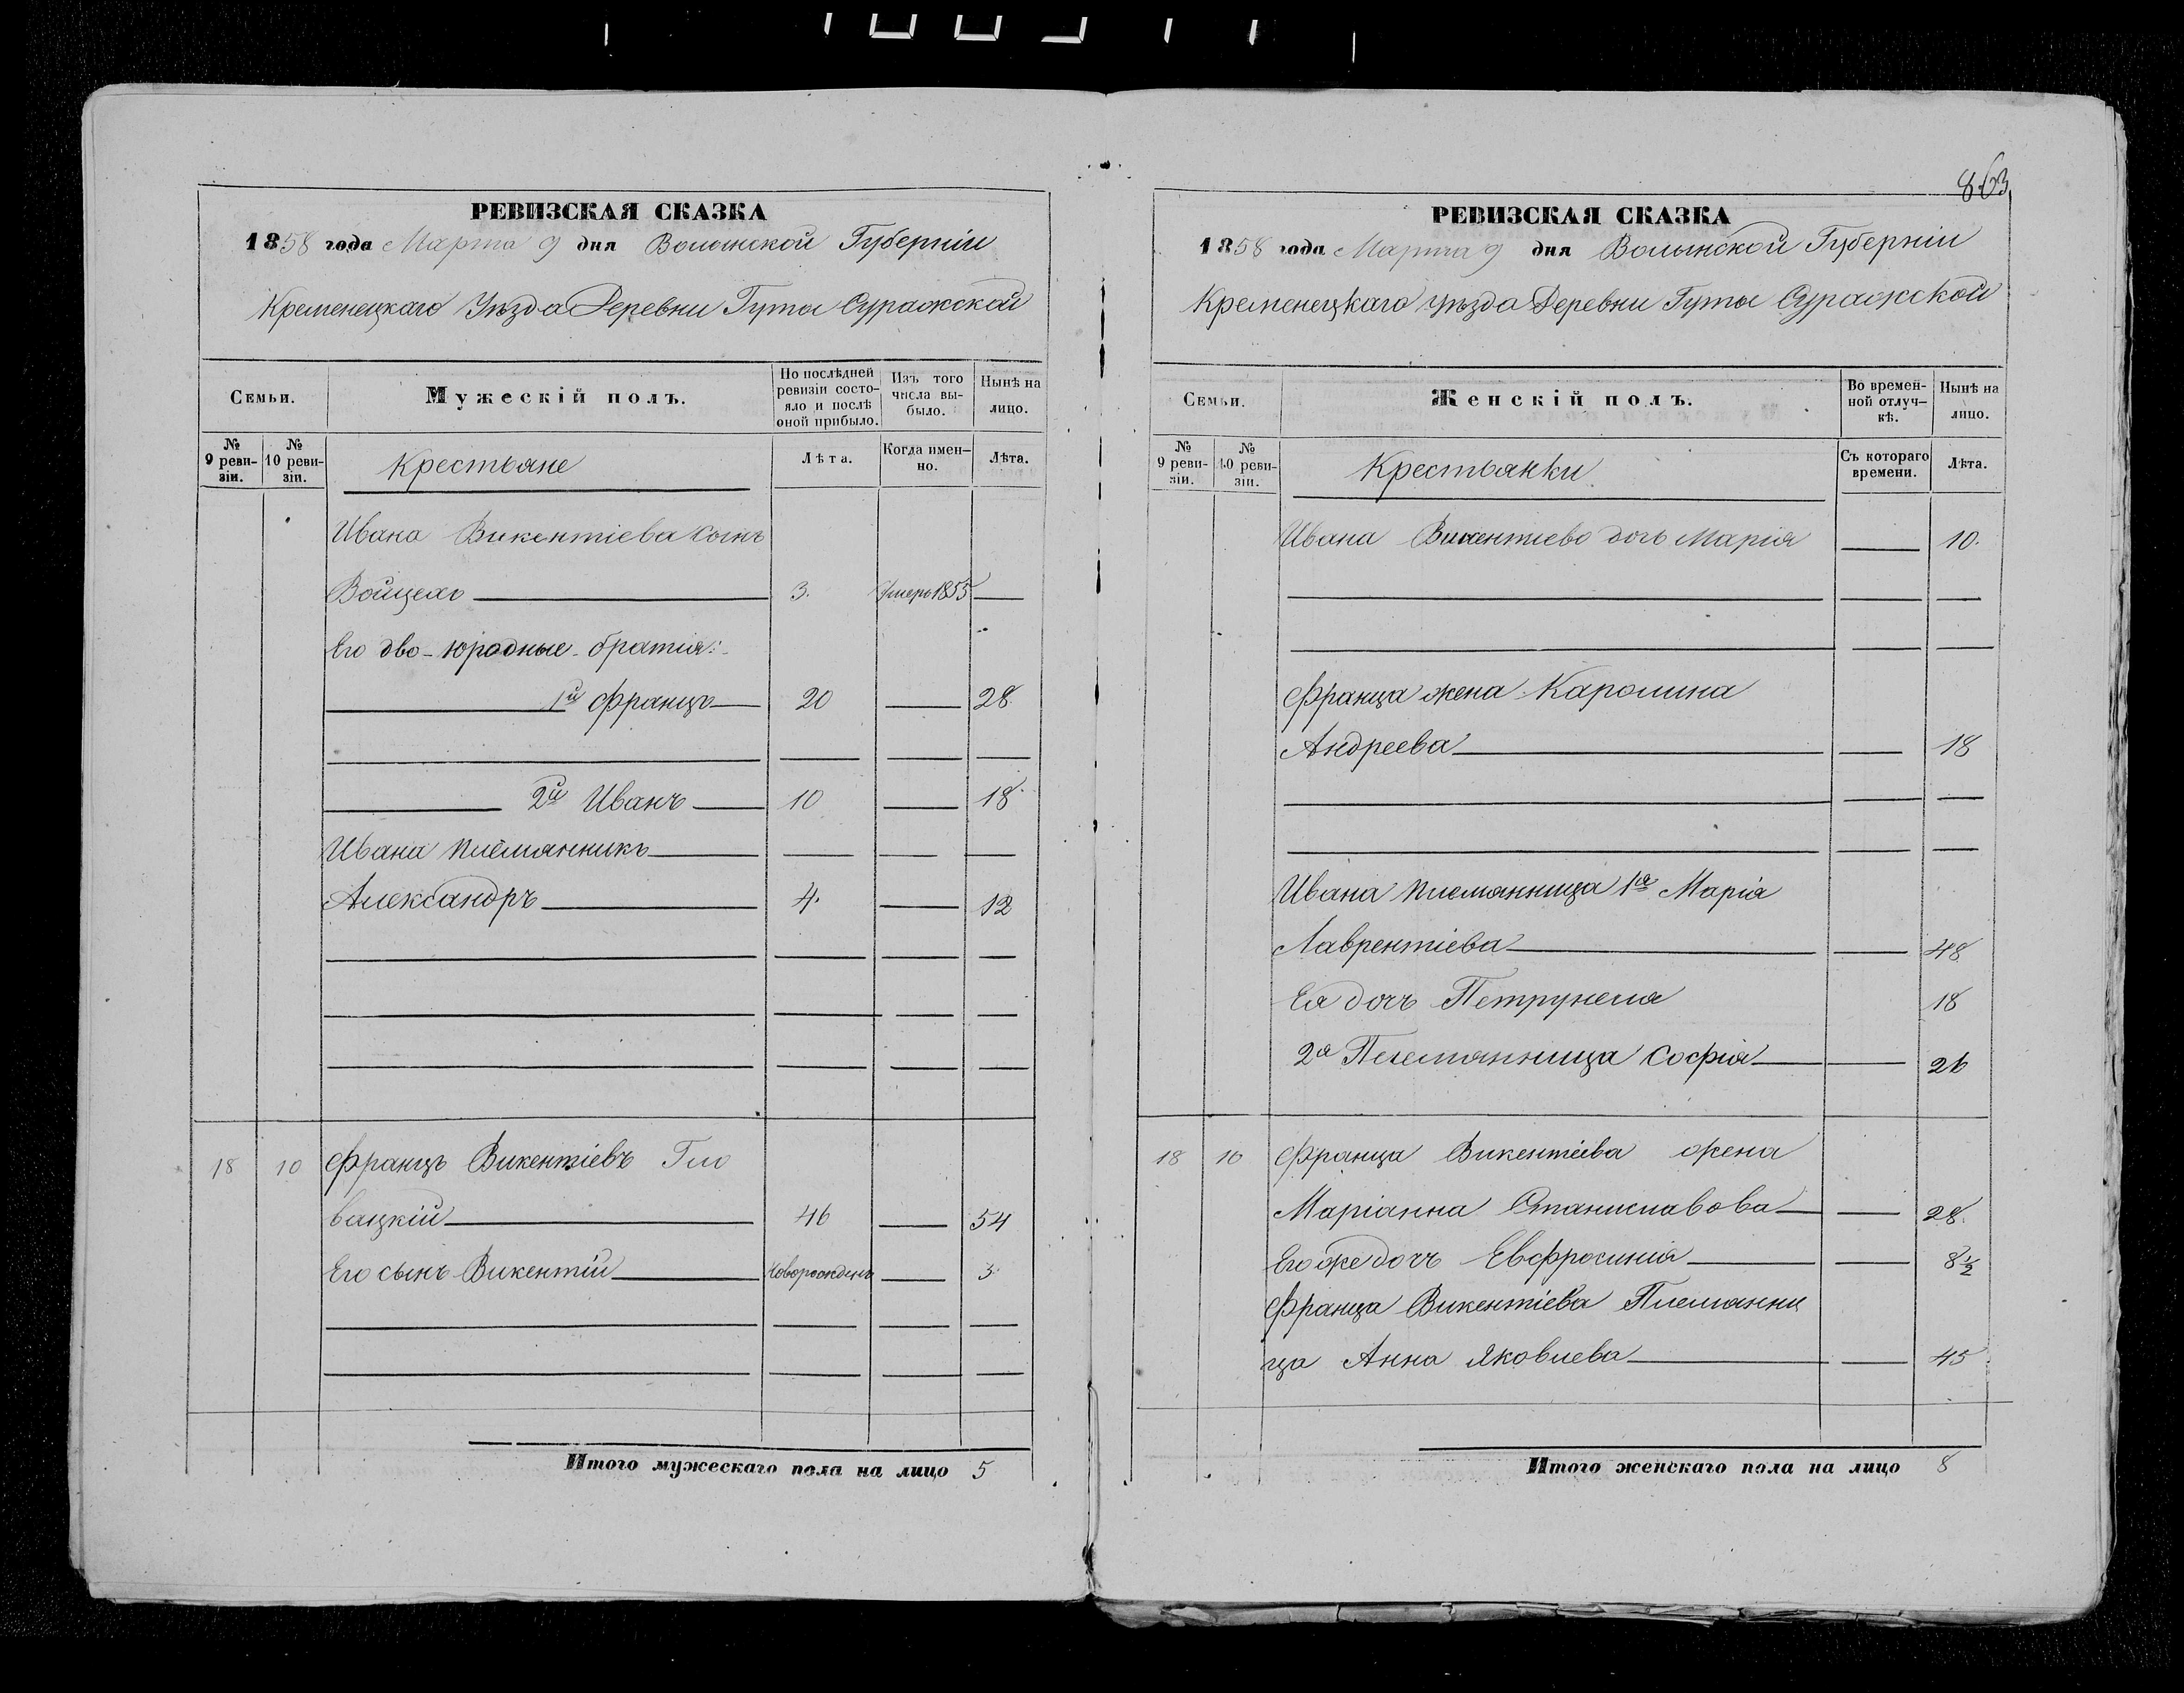 РЕВИЗСКАЯ СКАЗКА
1858 года Марта 9 дня Волынской Губерніи
Кременецкаго Уѣзда Деревни Гуты Суражской
Семьи. Мужескій полъ. По послѣдней ревизіи состояло и послѣ оной прибыло. Изъ того числа выбыло. Нынѣ на лицо.
№ 9 ревизіи. № 10 ревизіи. Крестьяне Лѣта. Когда именно. Лѣта.
Ивана Викентіева сынъ
Войцехъ 3. Умеръ 1855
Его дво-юродные братія:
1й Францъ 20 28
2й Иванъ 10 18
Ивана племянникъ
Александръ 4. 12
18 10 Францъ Викентіевъ Гло
вацкій 46 54
Его сынъ Викентій новорожденъ 3
Итого мужескаго пола на лицо 5
863
РЕВИЗСКАЯ СКАЗКА
1858 года Марта 9 дня Волынской Губерніи
Кременецкаго уѣзда Деревни Гуты Суражской
Семьи. Женскій полъ. Во временной отлучкѣ. Нынѣ на лицо.
№ 9 ревизіи. № 10 ревизіи. Крестьянки Съ котораго времени. Лѣта.
Ивана Викентіева дочь Марія 10.
Франца жена Каролина
Андреева 18
Ивана племянница 1я Марія
Лаврентіева 48
Ея дочь Петрунеля 18
2я Племянница Софія 26
18 10 Франца Викентіева жена
Маріанна Станиславова 28.
Его же дочь Евфросинія 8½
Франца Викентіева Племянни
ца Анна Яковлева 45
Итого женскаго пола на лицо 8